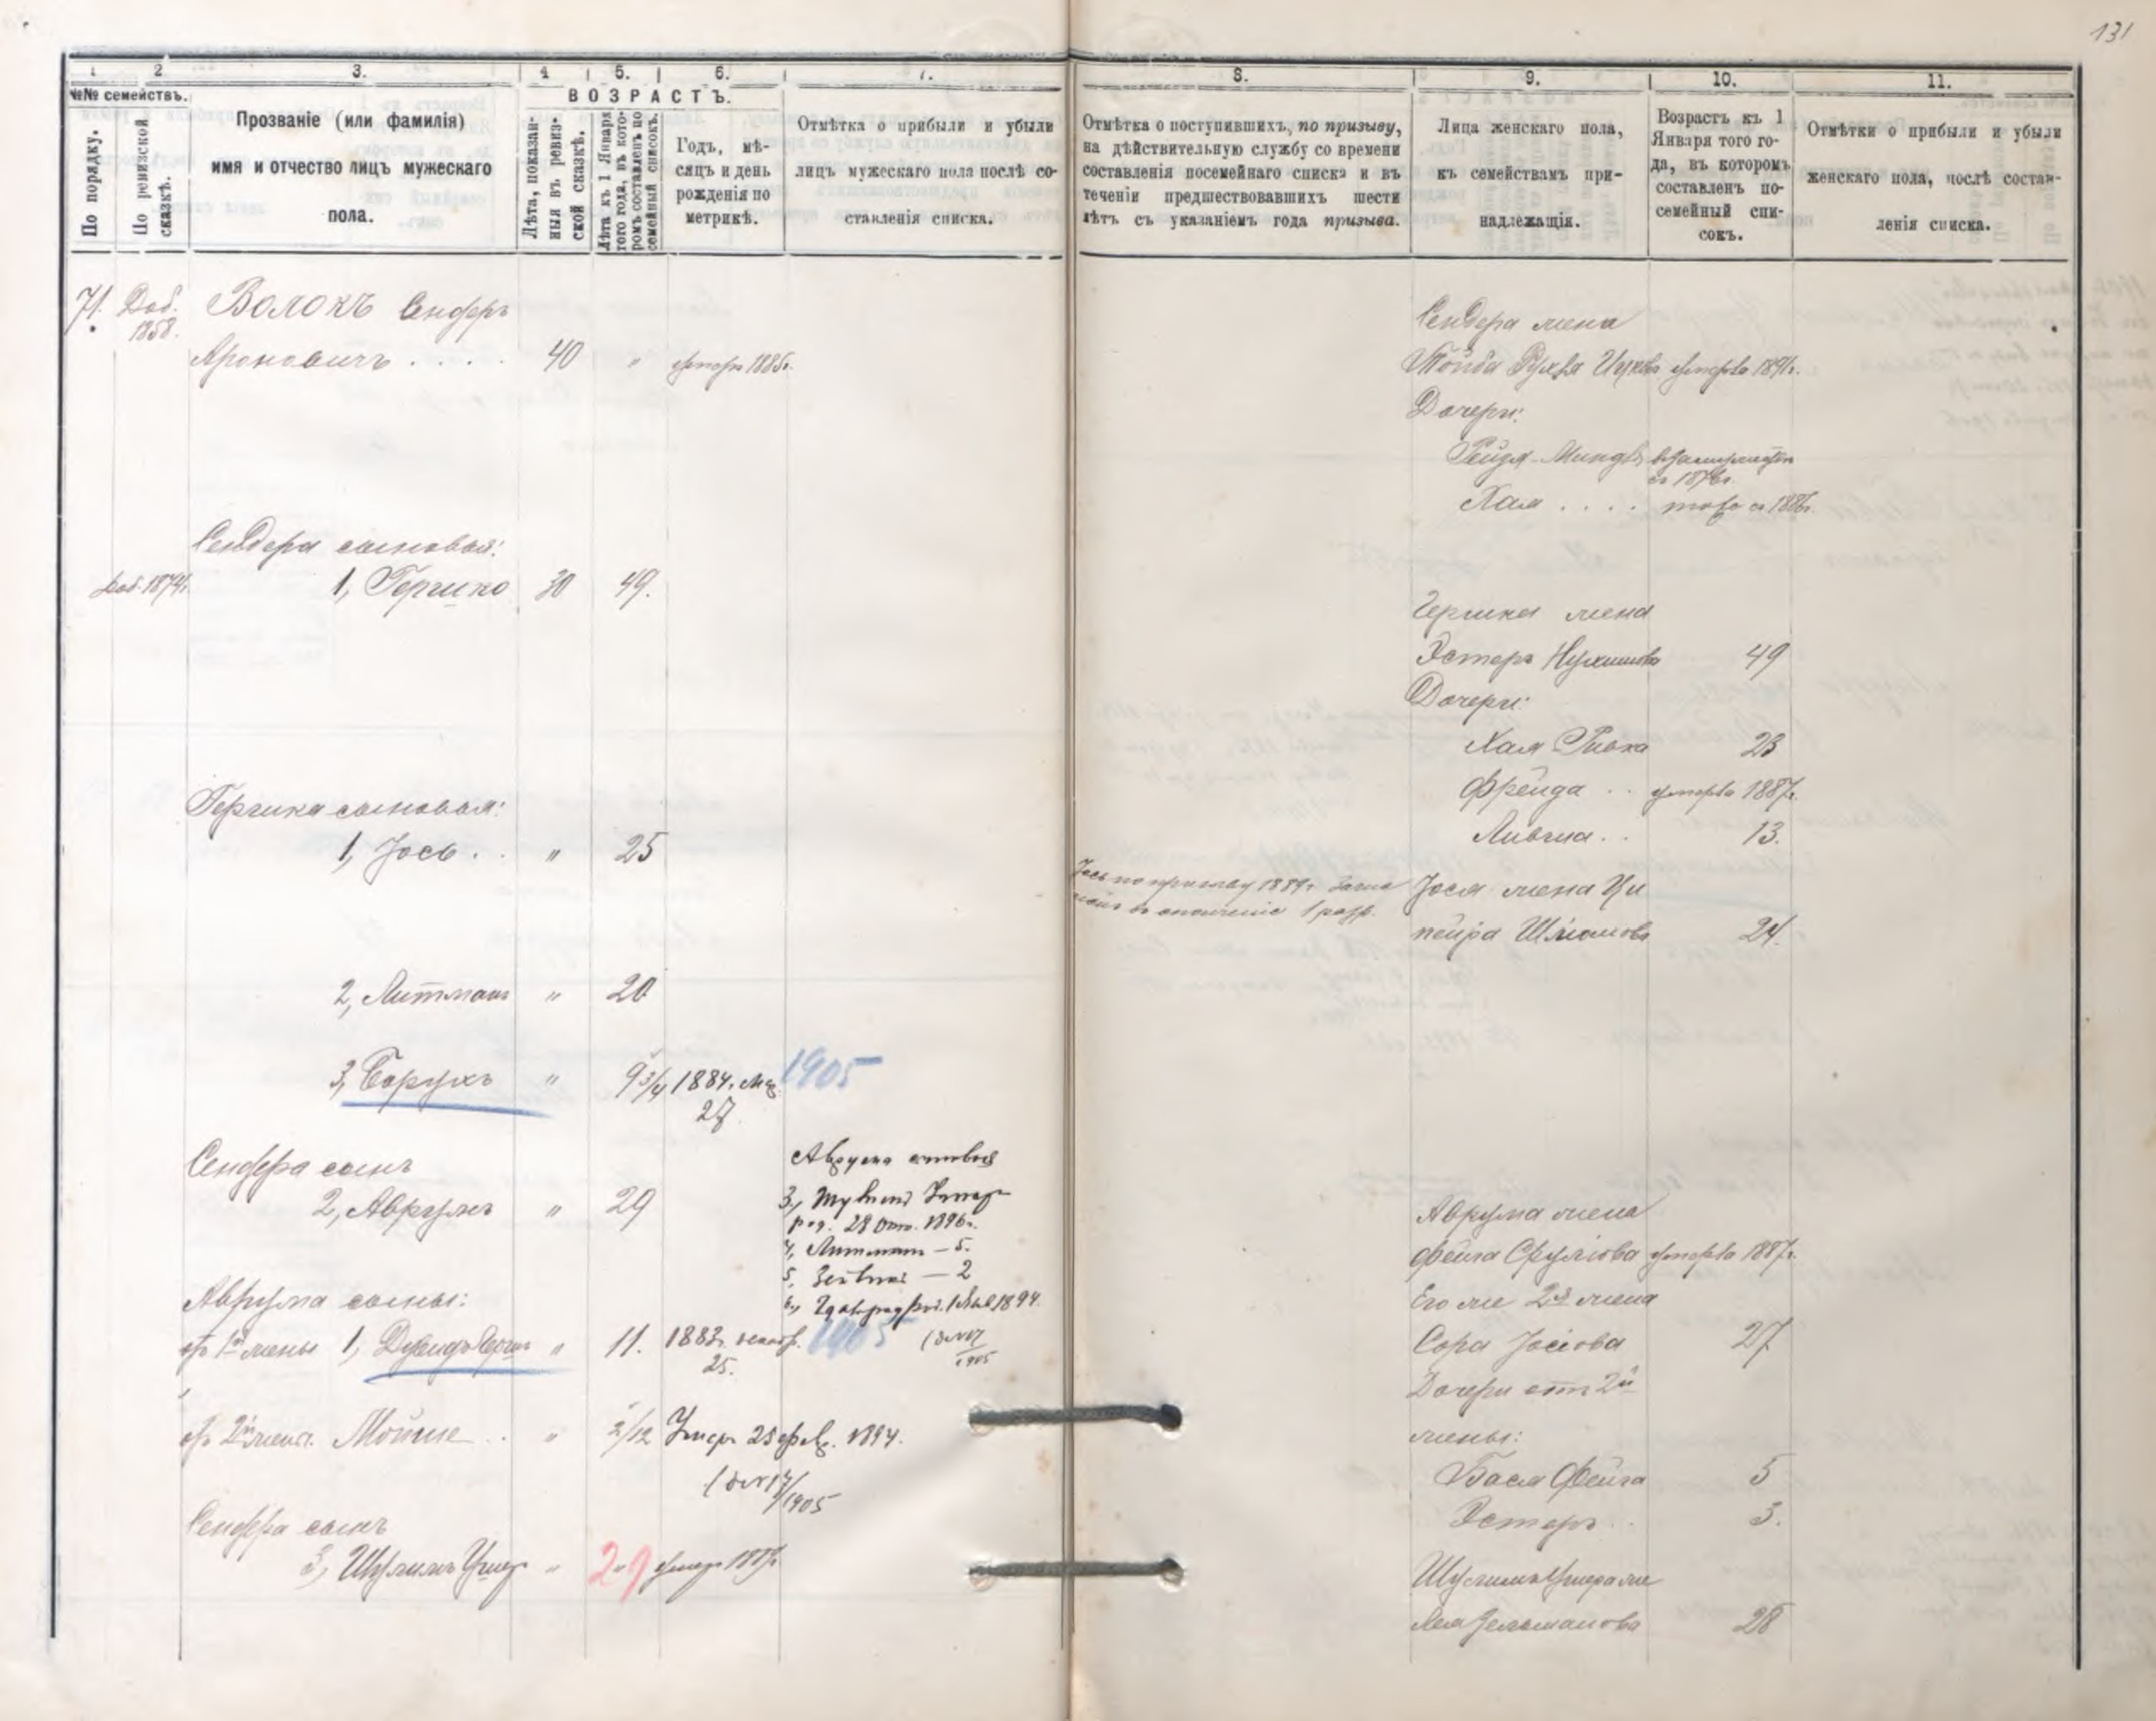 131
1
2
3.
4
5.
6.
7.
№№ семействъ.
По порядку.
По ревизской сказкѣ.
Прозваніе (или фамилія)
имя и отчество лицъ мужескаго
пола.
ВОЗРАСТЪ.
Лѣта, показан-
ныя въ ревиз-
ской сказкѣ.
Лѣта къ 1 Января
того года, въ кото-
ромъ составленъ по
семейный списокъ.
Годъ, мѣ-
сяцъ и день
рожденія по
метрикѣ.
Отмѣтка о прибыли и убыли
лицъ мужескаго пола послѣ со-
ставленія списка.
71. Доб. 1858.
Волокъ Сендеръ
Ароновичъ . . . . 40 " умеръ 1885г.
Сендера сыновья:
Доб. 1874г. 1, Гершко 30 49.
Гершка сыновья:
1, Іось . . " 25
2, Литманъ " 20
3, Борухъ " 9 3/4 1884г. 27 1905
Сендера сынъ
2, Аврумъ " 29
Аврума сыновья
3,
род. 28 Окт. 1896г.
4, Литманъ — 5.
5, — 2
6,
Аврума сыны:
отъ 1й жены 1, " 11. 1883г. 25. 1905
отъ 2й жены. Мойше . . " 2/12 Умеръ 25 Фев. 1894.
1905
Сендера сынъ
3, Шулимъ Ушеръ " умеръ
8.
9.
10.
11.
Отмѣтка о поступившихъ, по призыву,
на дѣйствительную службу со времени
составленія посемейнаго списка и въ
теченіи предшествовавшихъ шести
лѣтъ съ указаніемъ года призыва.
Лица женскаго пола,
къ семействамъ при-
надлежащія.
Возрастъ къ 1
Января того го-
да, въ которомъ
составленъ по-
семейный спи-
сокъ.
Отмѣтки о прибыли и убыли
женскаго пола, послѣ состав-
ленія списка.
Сендера жена
Тойба Рухля умерла 1891г.
Дочери:
Рейзя-Миндля въ замужествѣ
съ 1876г.
Хая . . . . тоже съ 1886г.
Гершка жена
Эстеръ Нухимова 49
Дочери:
Хая Ривка 23
Фрейда . . умерла 1887г.
Лившa . . 13.
Іось по призыву 1889г. зачис
ленъ въ ополченіе 1 разр.
Іося жена Ци
пейра Шліомова 24.
Аврума жена
Фейга Сруліова умерла 1887г.
Его же 2я жена
Сора Іосіова 27
Дочери отъ 2й
жены:
Бася Фейга 5
Эстеръ . . 3.
Шулима Ушера же
Лея Зельмановa 28